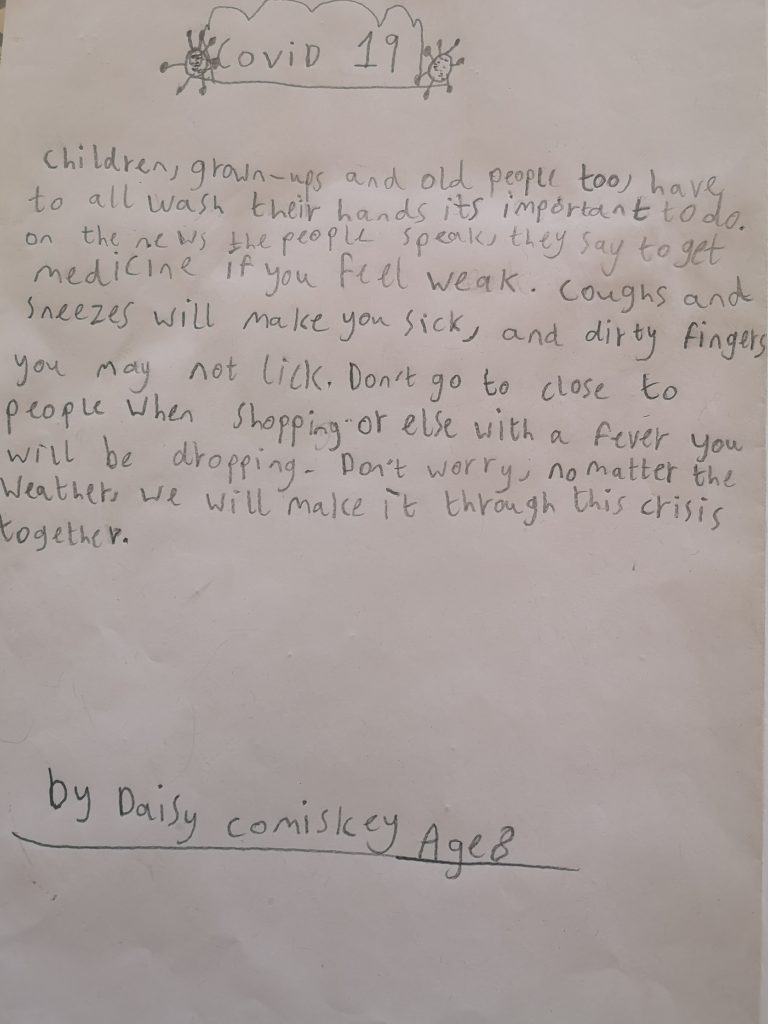 Covid 19
children, grown-ups and old people too, have
to all wash their hands its important to do.
on the news the people speak, they say to get
medicine if you feel weak. coughs and
sneezes will make you sick, and dirty fingers
you may not lick. Don't go to close to
people when shopping or else with a fever you
will be dropping. Don't worry, no matter the
weather, we will make it through this crisis
together.
by Daisy comiskey Age 8